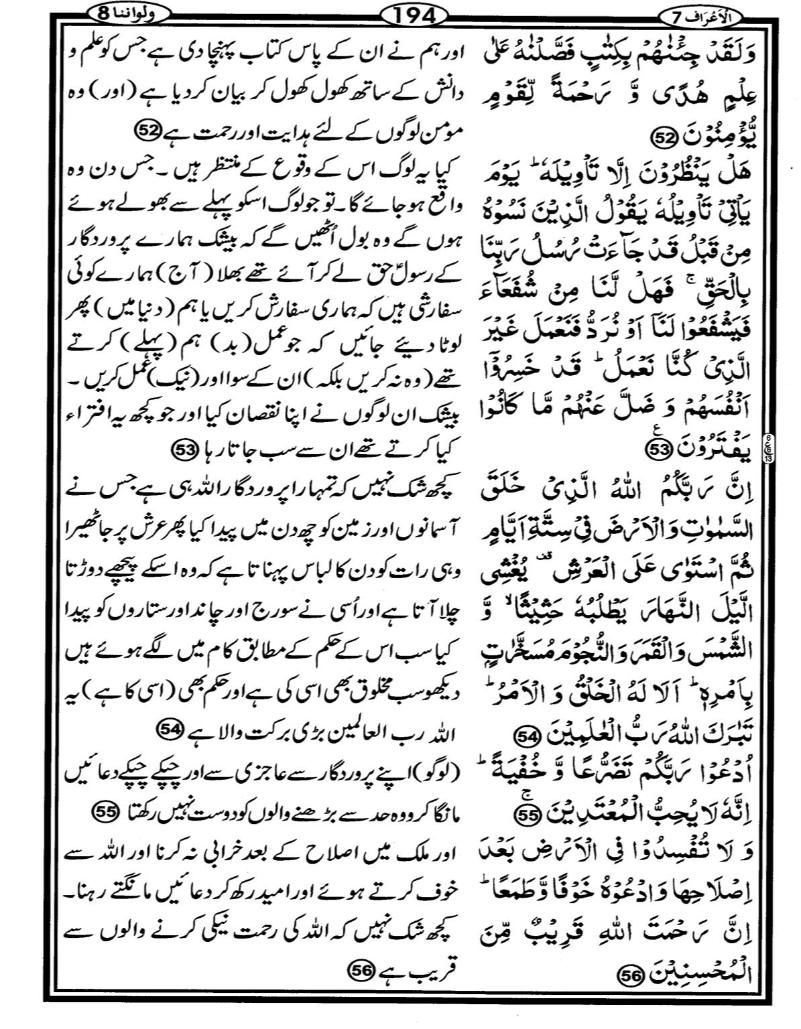 الاعراف 7
194
ولواننا 8
وَلَقَدۡ جِئۡنٰهُمۡ بِكِتٰبٍ فَصَّلۡنٰهُ عَلٰى
عِلۡمٍ هُدًى وَّ رَحۡمَةً لِّقَوۡمٍ
يُّؤۡمِنُوۡنَ 52
هَلۡ يَنۡظُرُوۡنَ اِلَّا تَاۡوِيۡلَهٗ ؕ يَوۡمَ
يَاۡتِىۡ تَاۡوِيۡلُهٗ يَقُوۡلُ الَّذِيۡنَ نَسُوۡهُ
مِنۡ قَبۡلُ قَدۡ جَآءَتۡ رُسُلُ رَبِّنَا
بِالۡحَقِّ ۚ فَهَلۡ لَّنَا مِنۡ شُفَعَآءَ
فَيَشۡفَعُوۡا لَنَاۤ اَوۡ نُرَدُّ فَنَعۡمَلَ غَيۡرَ
الَّذِىۡ كُنَّا نَعۡمَلُ ؕ قَدۡ خَسِرُوۡۤا
اَنۡفُسَهُمۡ وَ ضَلَّ عَنۡهُمۡ مَّا كَانُوۡا
يَفۡتَرُوۡنَ 53 ع
اِنَّ رَبَّكُمُ اللّٰهُ الَّذِىۡ خَلَقَ
السَّمٰوٰتِ وَالۡاَرۡضَ فِىۡ سِتَّةِ اَيَّامٍ
ثُمَّ اسۡتَوٰى عَلَى الۡعَرۡشِ ۟ يُغۡشِى
الَّيۡلَ النَّهَارَ يَطۡلُبُهٗ حَثِيۡثًا ۙ وَّ
الشَّمۡسَ وَالۡقَمَرَ وَالنُّجُوۡمَ مُسَخَّرٰتٍۢ
بِاَمۡرِهٖ ؕ اَلَا لَهُ الۡخَلۡقُ وَ الۡاَمۡرُ ؕ
تَبٰرَكَ اللّٰهُ رَبُّ الۡعٰلَمِيۡنَ 54
اُدۡعُوۡا رَبَّكُمۡ تَضَرُّعًا وَّ خُفۡيَةً ؕ
اِنَّهٗ لَا يُحِبُّ الۡمُعۡتَدِيۡنَ ۚ 55
وَ لَا تُفۡسِدُوۡا فِى الۡاَرۡضِ بَعۡدَ
اِصۡلَاحِهَا وَادۡعُوۡهُ خَوۡفًا وَّطَمَعًا ؕ
اِنَّ رَحۡمَتَ اللّٰهِ قَرِيۡبٌ مِّنَ
الۡمُحۡسِنِيۡنَ 56
اور ہم نے ان کے پاس کتاب پہنچا دی ہے جس کو علم و
دانش کے ساتھ کھول کھول کر بیان کر دیا ہے (اور) وہ
مومن لوگوں کے لئے ہدایت اور رحمت ہے 52
کیا یہ لوگ اس کے وقوع کے منتظر ہیں۔ جس دن وہ
واقع ہو جائے گا۔ تو جو لوگ اسکو پہلے سے بھولے ہوئے
ہوں گے وہ بول اُٹھیں گے کہ بیشک ہمارے پروردگار
کے رسولؑ حق لے کر آئے تھے بھلا (آج) ہمارے کوئی
سفارشی ہیں کہ ہماری سفارش کریں یا ہم (دنیا میں) پھر
لوٹا دیئے جائیں کہ جو عمل (بد) ہم (پہلے) کرتے
تھے (وہ نہ کریں بلکہ) ان کے سوا اور (نیک) عمل کریں۔
بیشک ان لوگوں نے اپنا نقصان کیا اور جو کچھ یہ افتراء
کیا کرتے تھے ان سے سب جاتا رہا 53
کچھ شک نہیں کہ تمہارا پروردگار اللہ ہی ہے جس نے
آسمانوں اور زمین کو چھ دن میں پیدا کیا پھر عرش پر جا ٹھیرا
وہی رات کو دن کا لباس پہناتا ہے کہ وہ اسکے پیچھے دوڑتا
چلا آتا ہے اور اُسی نے سورج اور چاند اور ستاروں کو پیدا
کیا سب اس کے حکم کے مطابق کام میں لگے ہوئے ہیں
دیکھو سب مخلوق بھی اسی کی ہے اور حکم بھی (اسی کا ہے) یہ
اللہ رب العالمین بڑی برکت والا ہے 54
(لوگو) اپنے پروردگار سے عاجزی سے اور چپکے چپکے دعائیں
مانگا کرو وہ حد سے بڑھنے والوں کو دوست نہیں رکھتا 55
اور ملک میں اصلاح کے بعد خرابی نہ کرنا اور اللہ سے
خوف کرتے ہوئے اور امید رکھ کر دعائیں مانگتے رہنا۔
کچھ شک نہیں کہ اللہ کی رحمت نیکی کرنے والوں سے
قریب ہے 56